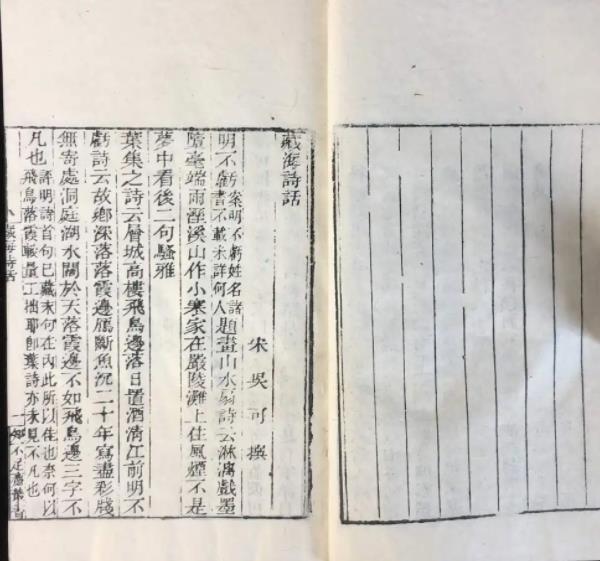 藏海詩話
宋吳可撰
明不虧案明不虧姓名諸書不載未詳何人題畫山水扇詩云淋漓戲墨
墮毫端雨溼溪山作小寒家在嚴陵灘上住風煙不是
夢中看後二句騷雅
葉集之詩云層城高樓飛鳥邊落日置酒清江前明不
虧詩云故鄉深落落霞邊鴈斷魚沉二十年寫盡彩牋
無寄處洞庭湖水闊於天落霞邊不如飛鳥邊三字不
凡也評明詩首句已藏末句在內此所以佳也奈何以飛鳥落霞較量工拙耶卽葉詩亦未見不凡也
藏海詩話 一 知不足齋叢書